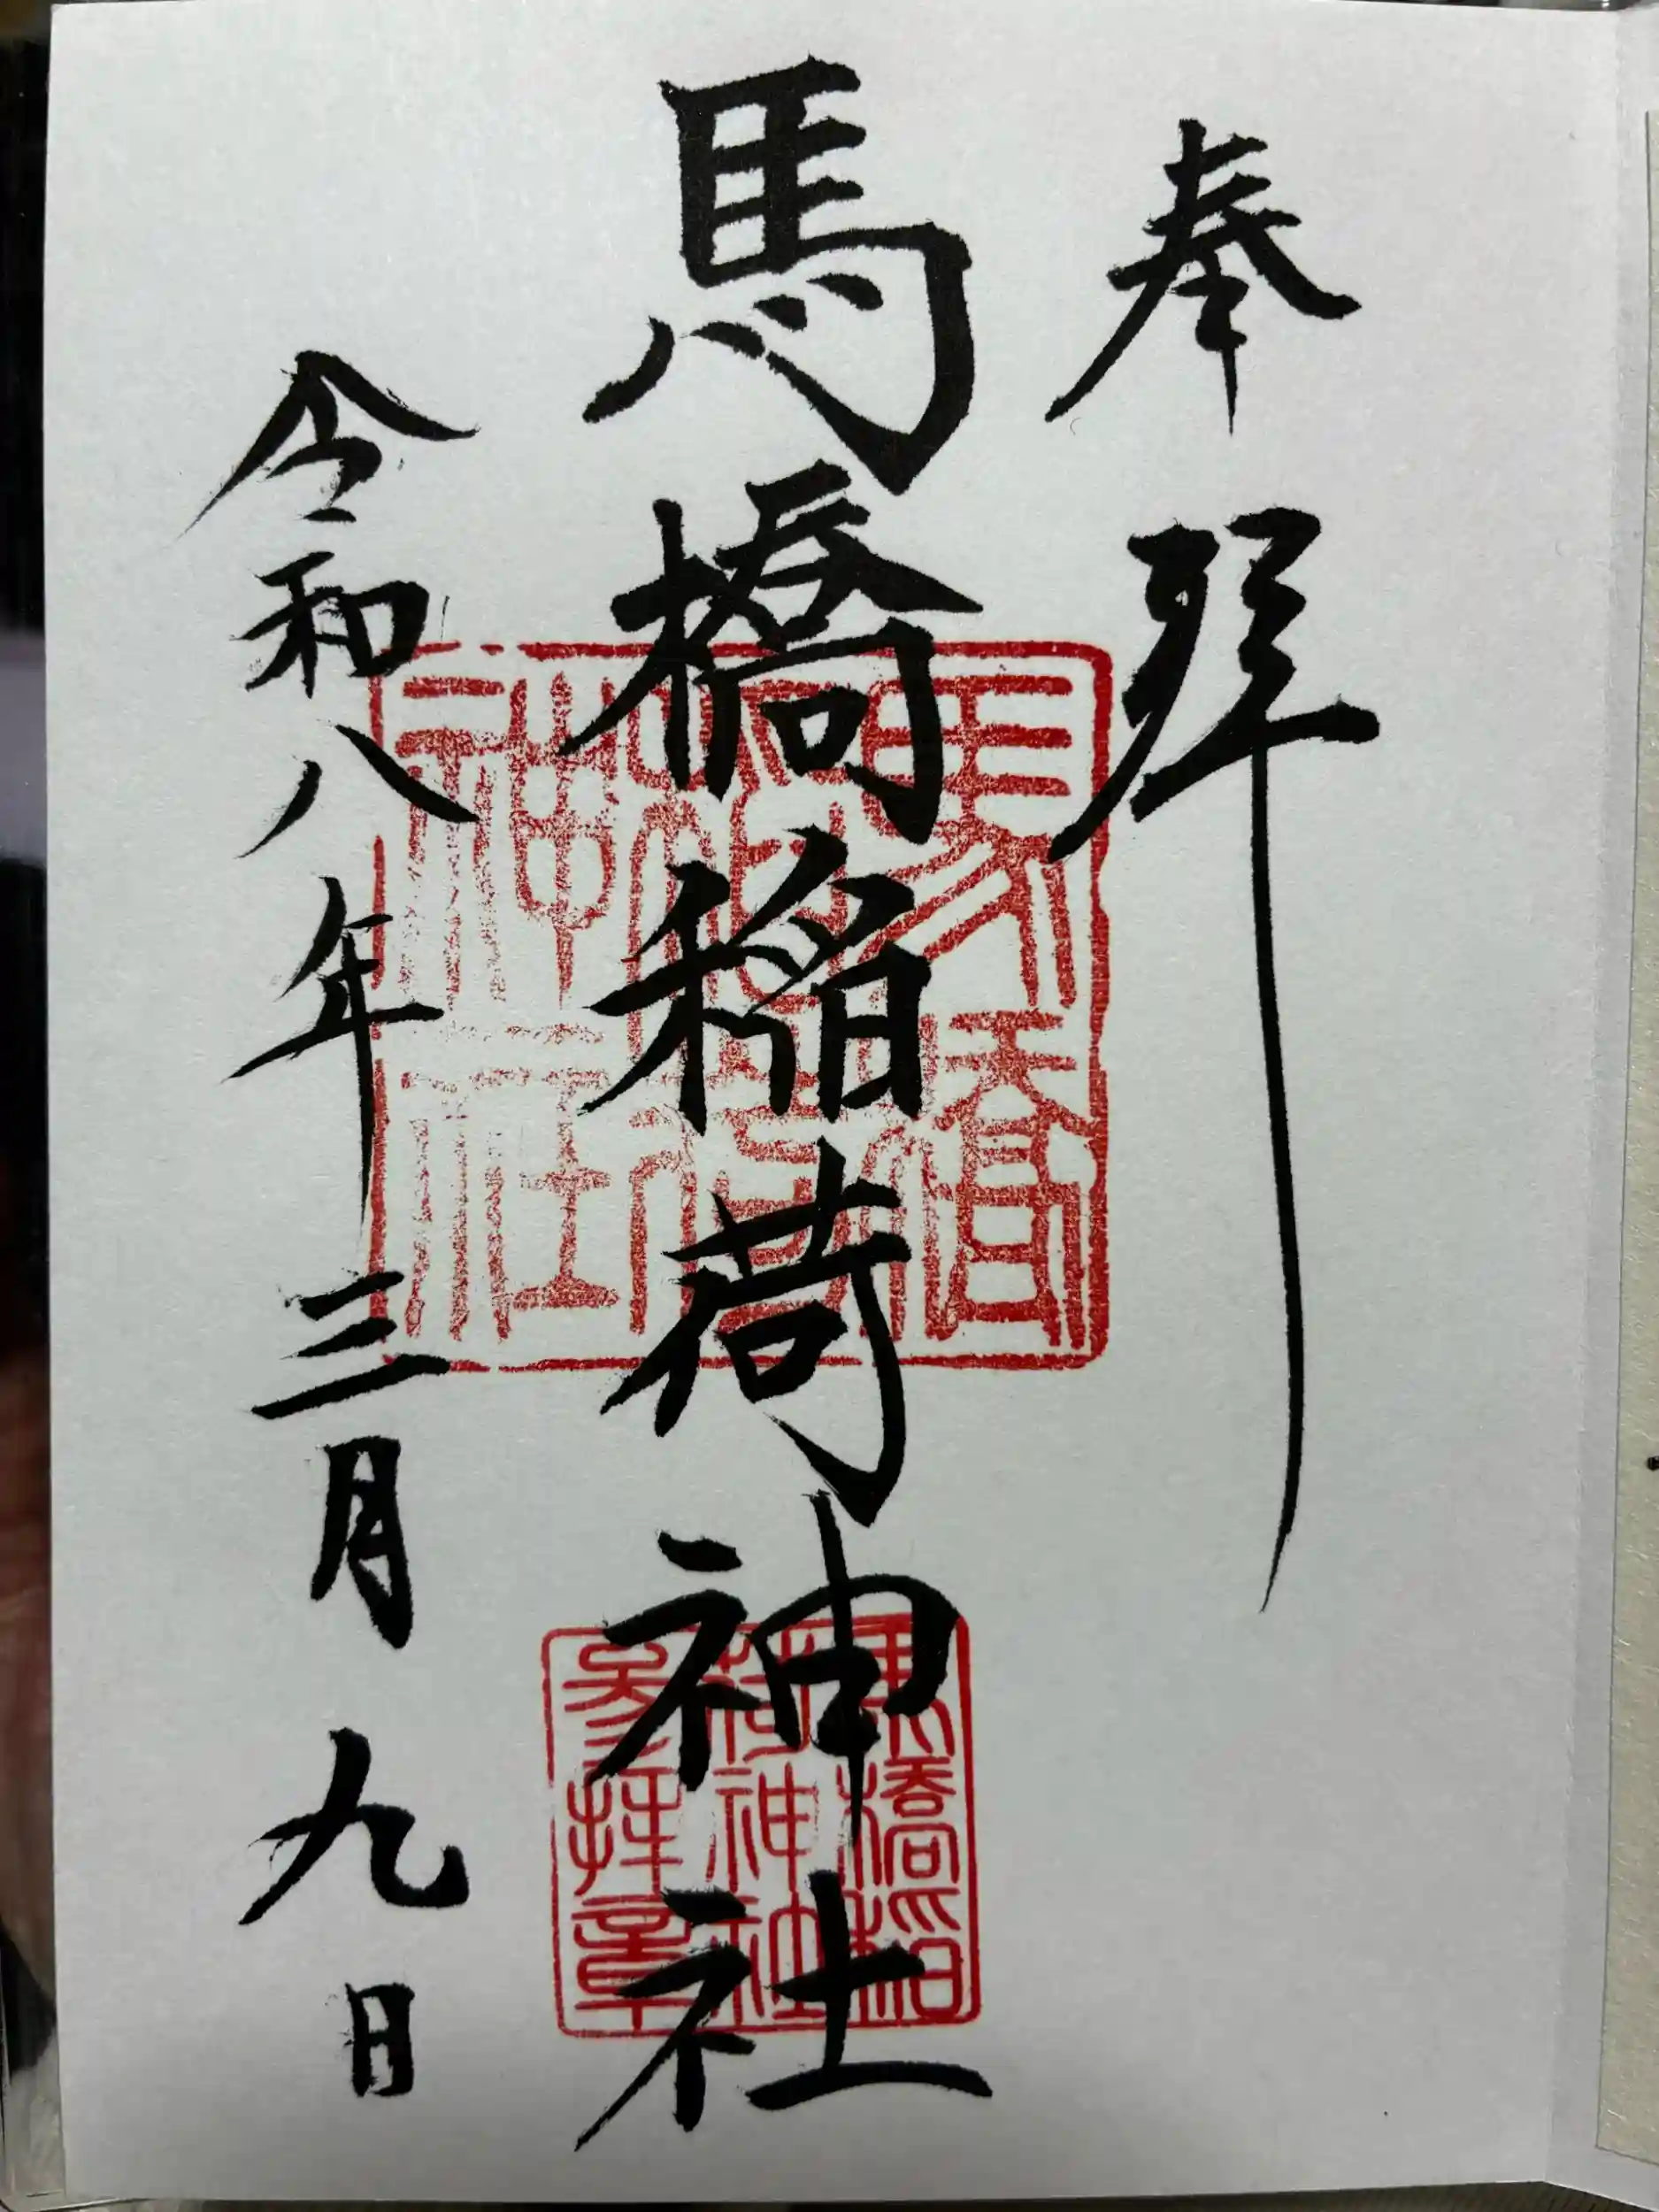 奉拝
馬橋稲荷神社
馬橋
稲荷
神社
馬橋稲
荷神社
参拝章
令和八年三月九日